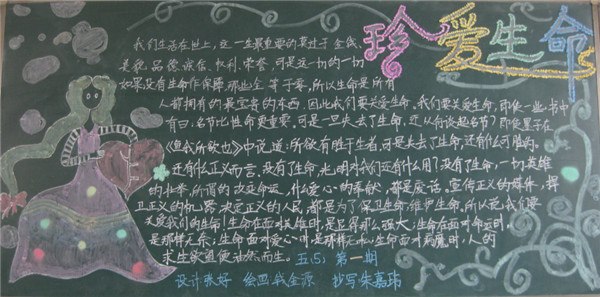 珍爱生命
我们生活在世上,这一生最重要的莫过于金钱、
美貌、品德、诚信、权利、荣誉,可是这一切的一切
如果没有生命作保障,那些全等于零,所以生命是所有
人都拥有的最宝贵的东西,因此我们要关爱生命。我们要关爱生命,即使一些书中
有曰:名节比性命更重要,可是一旦失去了生命,还从何谈起名节?即使墨子在
《鱼我所欲也》中说道:所欲有胜于生者,可是失去了生命,还有什么可胜的,
还有什么正义而言,没有了生命,光明对我们还有什么用?没有了生命,一切英雄
的壮举,所谓的改革命运,什么爱心的奉献,都是废话,宣传正义的媒体,捍
卫正义的机器,决定正义的人民,都是为了保卫生命,维护生命,所以说我们要
关爱我们的生命!生命在面对英雄时,是显得那么强大;生命在面对命运时,
是那样无奈;生命面对爱心时,是那样无私;生命面对病魔时,人的
求生欲望便油然而生。五(5)第一期
设计张好 绘画钱金源 抄写朱嘉玮